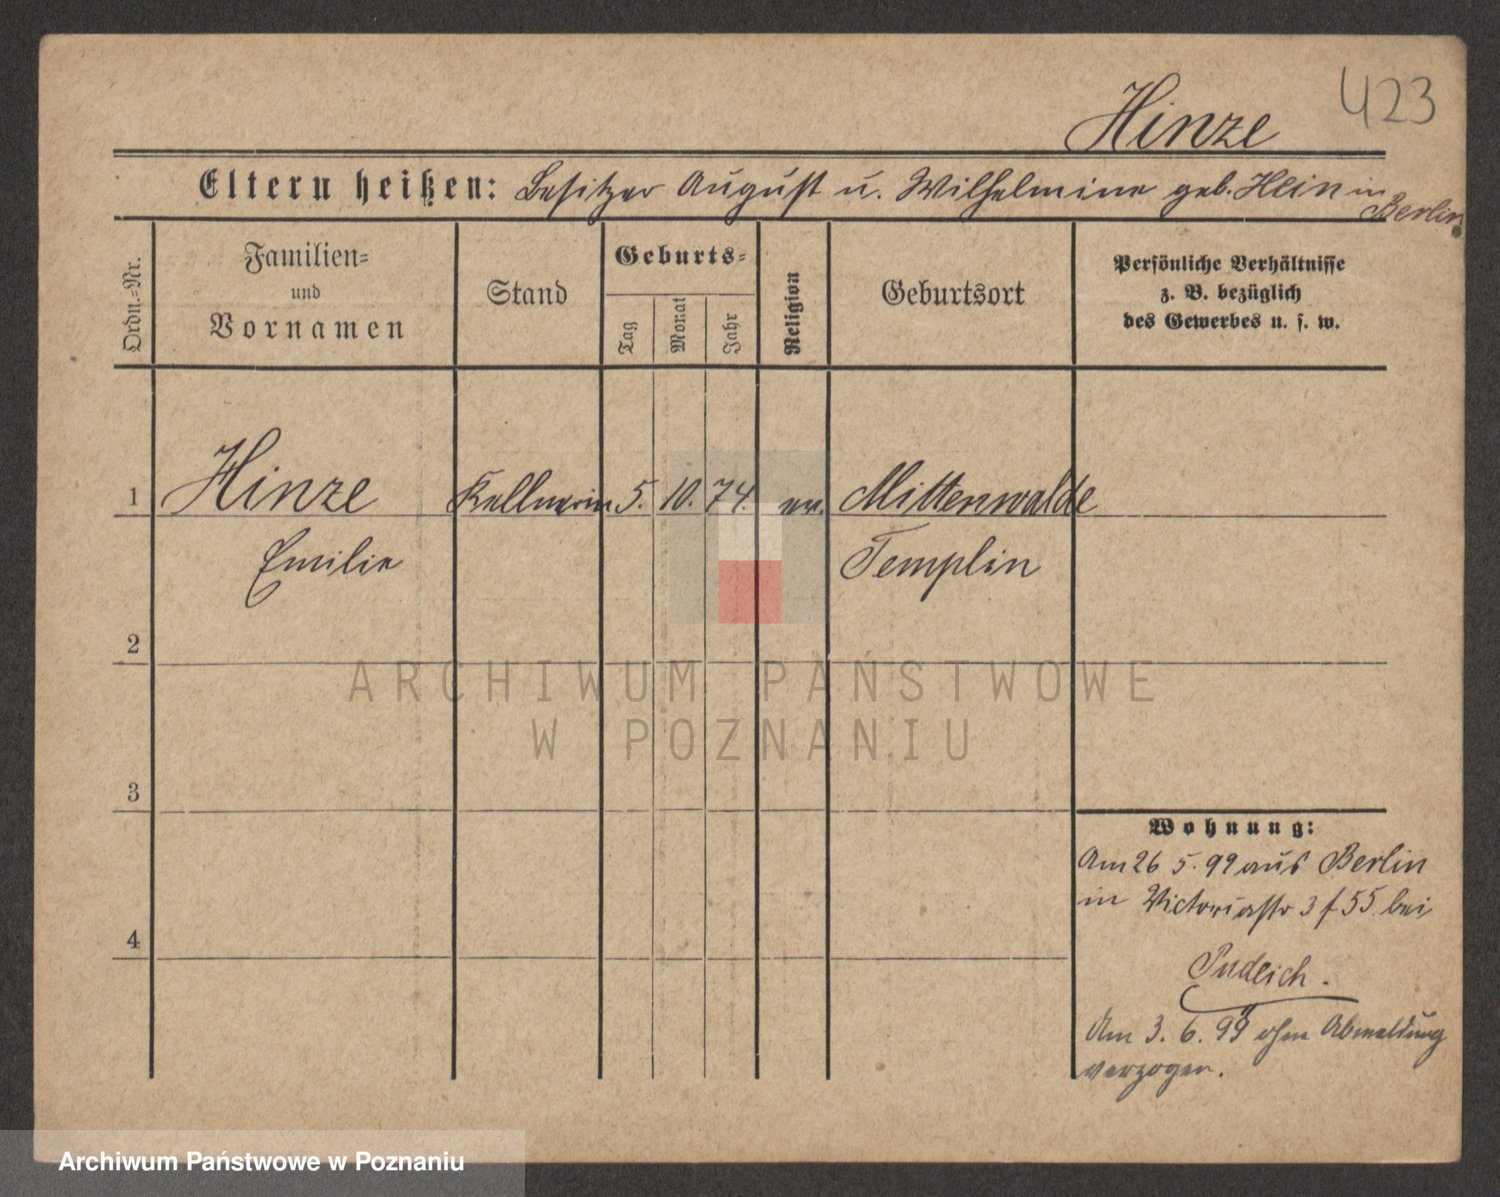 423
Hinze
Eltern heißen: Besitzer August u. Wilhelmine geb. Hein in Berlin
Ordn.=Nr.
Familien= und Vornamen
Stand
Geburts=
Tag
Monat
Jahr
Religion
Geburtsort
Persönliche Verhältnisse
z. B. bezüglich
des Gewerbes u. s. w.
1 Hinze Kellnerin 5. 10. 74. ev. Mittenwalde
Emilie Templin
2
3
4
Wohnung:
Am 26 5. 99 aus Berlin
in Victoriastr 3 f 55 bei
Pudeich.
Am 3. 6. 99 ohne Abmeldung
verzogen.
ARCHIWUM PAŃSTWOWE
W POZNANIU
Archiwum Państwowe w Poznaniu